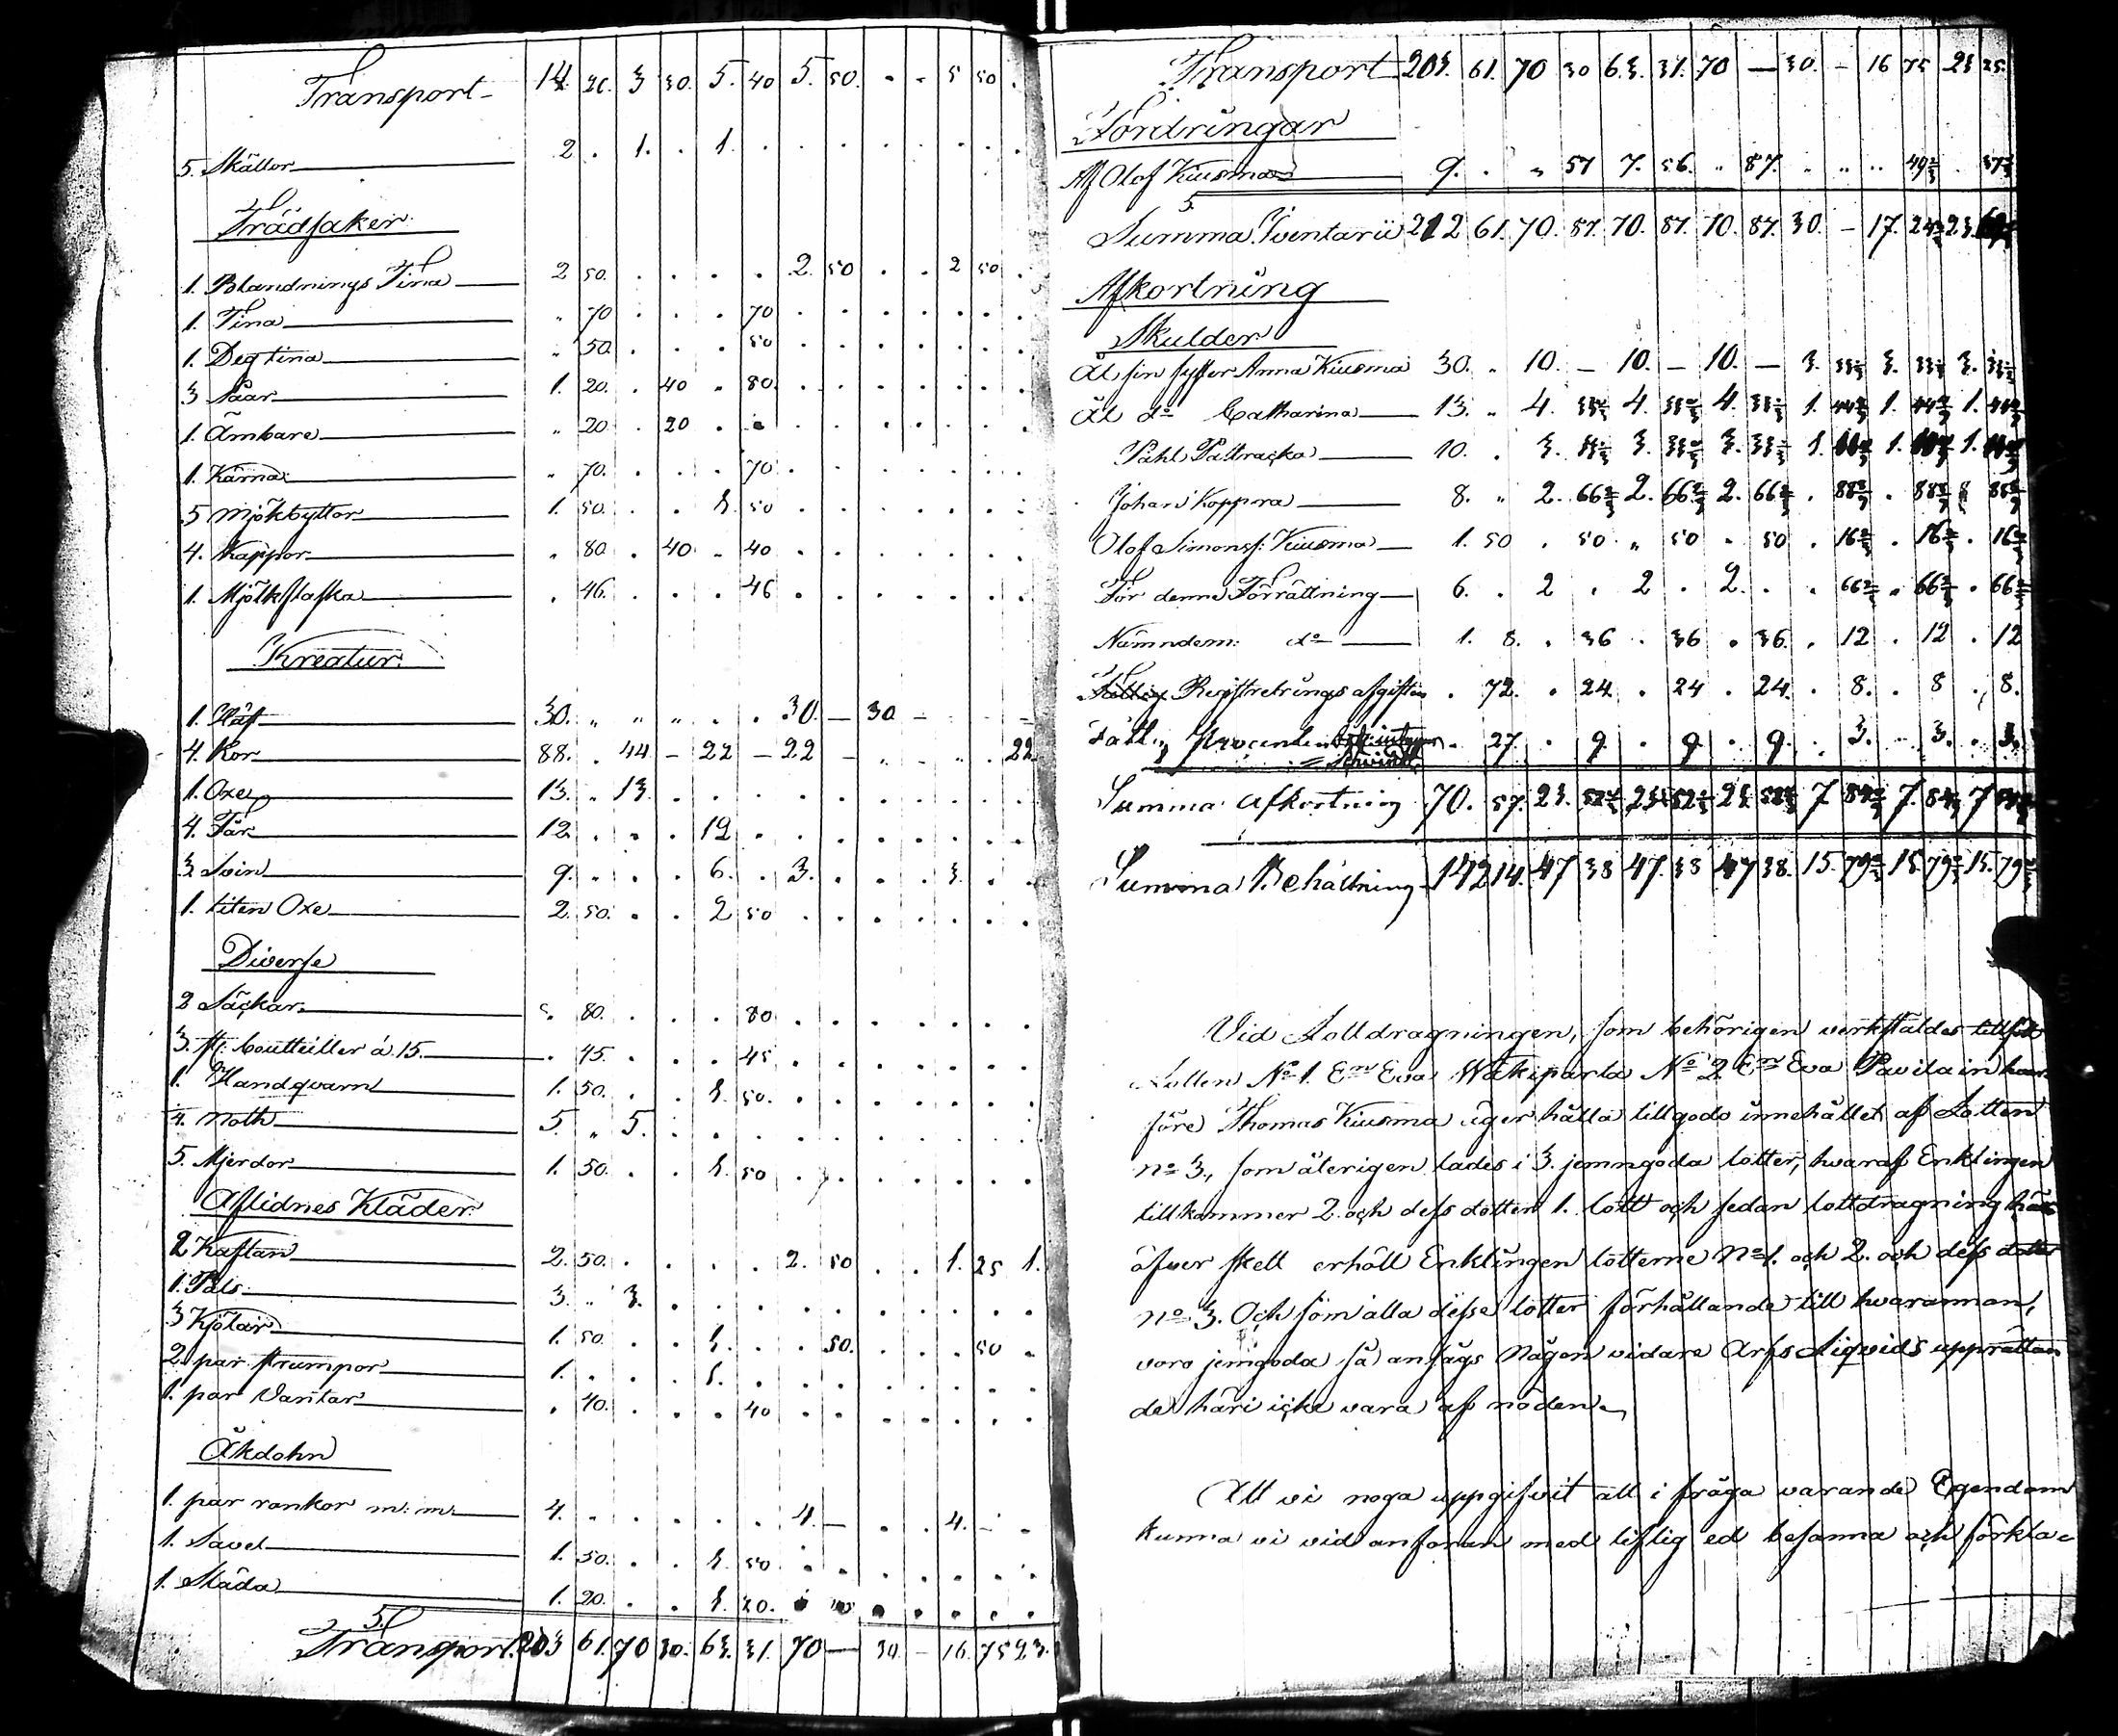 Transport 14 26. 3 30. 5. 40 5. 50. . - 5 50 .
5. Skällor 2 . 1. . 1. . . . . . . . .
Trädsaker
1. Blandnings Tina 2 50. . . . . 2. 50 . . 2 50 .
1. Tina " 70 . . . 70 . . . . . . .
1. Deg tina " 50. . . . 50 . . . . . . .
3 Såar 1. 20. . 40 " 80. . . . . . . .
1. Ämbare " 20. . 20 . . . . . . . . .
1. Kärna " 70. . . . 70 . . . . . . .
5 Mjökbyttor 1. 50. . . 1. 50 . . . . . . .
4. Kappor . 80 . 40 " 40 . . . . . . .
1. Mjölkflaska . 46. . . . 46 . . . . . . .
Kreatur
1. Häst 30. " " " . . 30. — 30 - - - -
4. Kor 88. . 44 - 22 - 22 - " - " . 22
1. Oxe 13. " 13. . . . . . . . . . .
4. Får 12. . . . 12 . . . . . . . .
3 Svin 9. . . . 6. . 3. . . . 3. . .
1. liten Oxe 2. 50. . . 2 50 . . . . . . .
Diverse
2 Säckar . 80. . . . 80 . . . . . . .
3. st: boutteiller á 15. . 45. . . . 45 . . . . . . .
1. Handqvarn 1. 50. . . 1. 50. . . . . . . .
4. Noth 5. " 5. . . . . . . . . . .
5. Mjerdor 1. 50. . . 1. 50 . . . . . . .
Aflidnes Kläder
2 Kaftan 2. 50. . . . . 2. 50 . . 1. 25 1.
1. Päls 3. " 3. . . . . . . . . . .
3 Kjolar 1. 50. . . 1. . . 50. . . . 50 .
2. par strumpor 1. . . . 1. . . . . . . . .
1. par Vantar . 40. . . . 40 . . . . . . .
Åkdohn
1. par rankor m: m: 4. . . . . . 4. — . . 4. - .
1. Savel 1. 50. . . 1. 50 . . . . . . .
1. Släda 1. 20. . . 1. 20. . . . . . . .
5. Transport. 203 61. 70 30. 63. 31. 70 — 30 - 16. 75 23.
Transport 203. 61. 70 30 63. 31. 70 — 30. - 16 75 23 25.
Fordringar
Af Olof Kiusma 9. . " 57 7. 56. " 87. " " " 49 2/3 . 37 2/3
5.
Summa Iventarii 212 61. 70. 87. 70. 87. 70. 87. 30. - 17. 24 2/3 23.
Afkortning
Skulder
Åt sin syster Anna Kiusma 30. " 10. — 10. — 10. — 3. 33 1/3 3. 33 1/3 3. 33 1/3
Åt do Catharina 13. " 4. 33 1/3 4. 33 1/3 4. 33 1/3 1. 44 4/9 1. 44 4/9 1. 44 4/9
Påhl Pallracka 10. . 3. 33 1/3 3. 33 1/3 3. 33 1/3 1. 1. 1.
Johan Koppra 8. " 2. 66 2/3 2. 66 2/3 2. 66 2/3 . 88 8/9 . 88 8/9 88 8/9
Olof Simonss: Kiusma 1. 50 . 50 " 50 . 50 . 16 2/3 . 16 2/3 . 16 2/3
För denne Förrättning 6. . 2 . 2 . 2. . . 66 2/3 . 66 2/3 . 66 2/3
Nämndem: do 1. 8. . 36 . 36 . 36. . 12 . 12 . 12
Registrerings afgiften . 72. . 24. . 24 . 24. . 8. . 8 . 8.
Fatt: procenten . 27. . 9. . 9. . 9. . 3. . 3. . 3.
Summa Afkortning 70. 57. 23. 52 23. 52 23 52 7 84 7. 84 7
Summa Behåltning 142 14. 47 38 47. 38 47 38. 15. 79 15. 79 15. 79
Vid Lottdragningen, som behörigen verkstäldes tillföll
Lotten No 1. Enn Eva Wäkiparta No 2 Enn Eva Pavilain hvar
före Thomas Kiusma äger hålla tillgodo innehållet af Lotten
no 3, som återigen lades i 3. jemngoda lotter, hvaraf Enklingen
tillkommer 2. och dess dotter 1. lott och sedan lottdragning här
öfver skett erhöll Enklingen lotterne No 1. och 2. och dess dotter
no 3. Och som alla desse lotter förhållande till hvarannan,
voro jemgoda så ansågs Någon vidare Arfs Liqvids upprättan
de häri icke vara af nöden
Att vi noga uppgifvit all i fråga varande Egendom
kunna vi vid anfordran med liflig ed besanna och förkla=